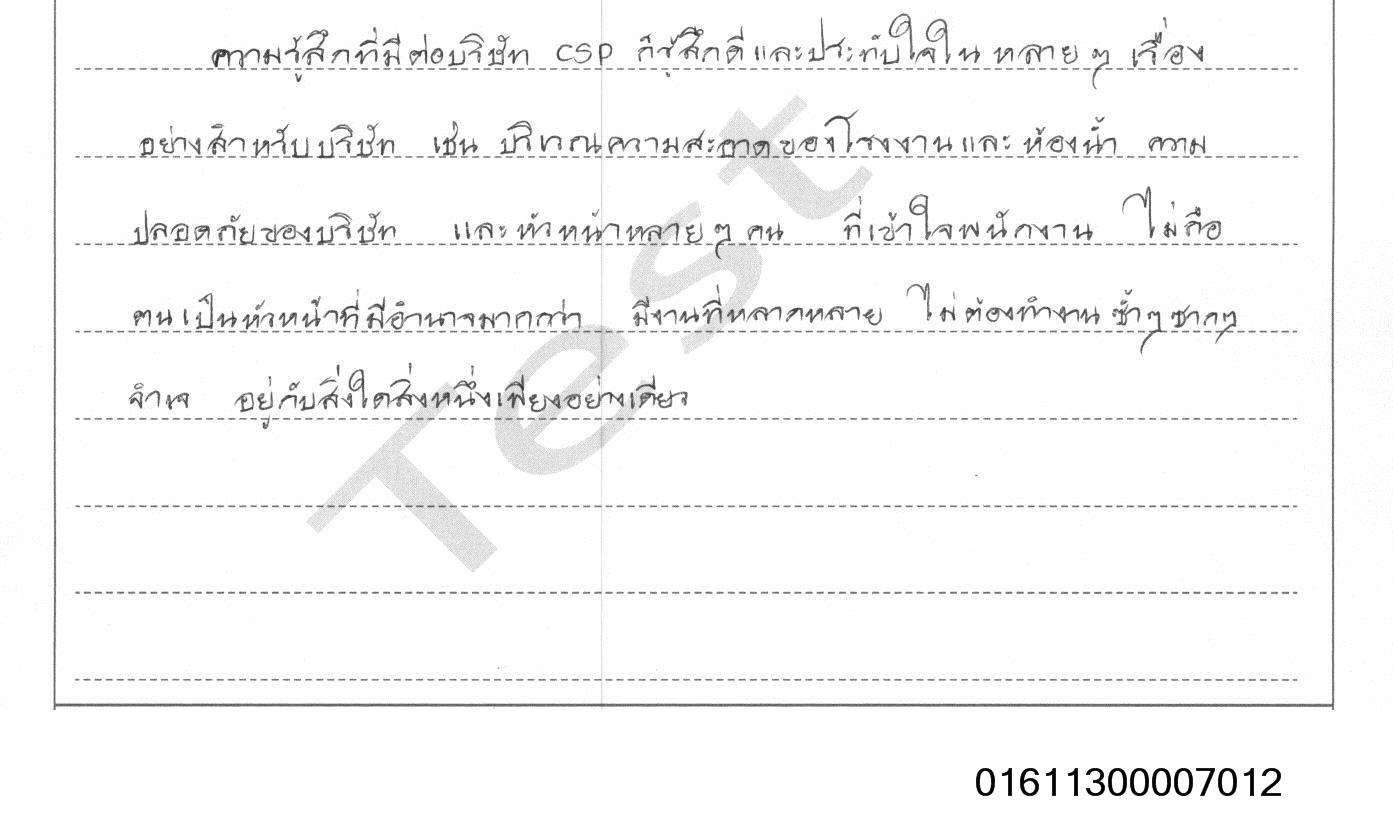 ความรู้สึกที่มีต่อบริษัท CSP ก็รู้สึกดีและประทับใจใน หลาย ๆ เรื่อง
อย่างสำหรับบริษัท เช่น บริเวณความสะอาดของโรงงานและห้องน้ำ ความ
ปลอดภัยของบริษัท และหัวหน้าหลาย ๆ คน ที่เข้าใจพนักงาน ไม่ถือ
ตนเป็นหัวหน้าที่มีอำนาจมากกว่า มีงานที่หลากหลาย ไม่ต้องทำงานซ้ำๆซากๆ
จำเจ อยู่กับสิ่งใดสิ่งหนึ่งเพียงอย่างเดียว
Test
01611300007012